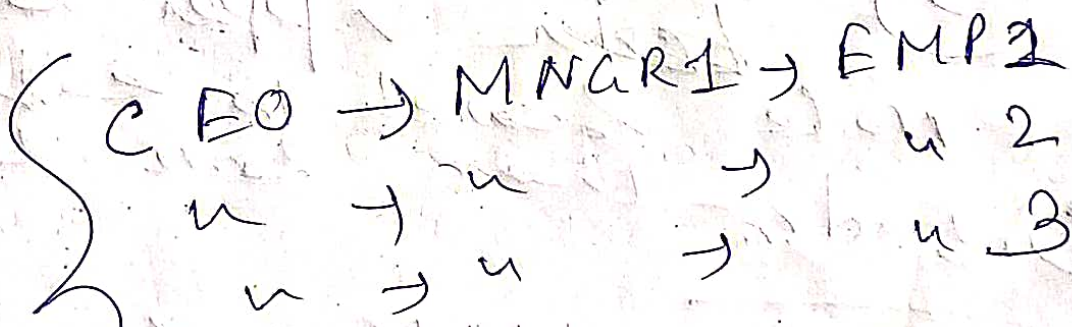 CEO → MNGR1 → EMP1
" → " → " 2
" → " → " 3